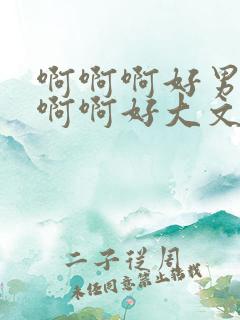 啊啊啊好男
啊啊好大文
二子从周
未经同意禁止转载